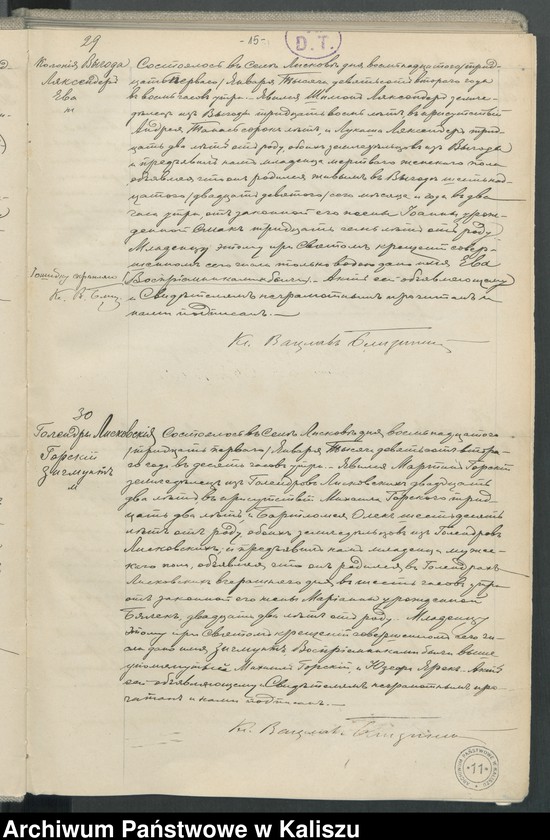 -15-
D.T.
29
Колонія Выгода
Ева
Состоялось въ Селѣ Лисковъ дня восемнадцатаго /трид-
цать перваго/ Января Тысяча девятьсотъ втораго года
въ восемь часовъ утра. Явился земле-
дѣлецъ изъ Выгоды тридцать восемь лѣтъ въ присутствіи
Андрея сорокъ лѣтъ и Лукаша трид-
цать два лѣтъ отъ роду, обоихъ земледѣльцевъ изъ Выгоды
и предъявилъ намъ младенца мертваго женскаго пола
объявляя что онъ родился живымъ въ Выгодѣ шестнад-
цатаго /двадцать девятаго/ сего мѣсяца и года въ два
часа утра, отъ законной его жены Іоанны урож-
денной тридцать семь лѣтъ отъ роду
Младенцу этому при Святомъ крещеніи совер-
шенномъ сего числа только водою дано имя Ева
Актъ сей объявляющему
и Свидѣтелямъ неграмотнымъ прочитанъ и
нами подписанъ. —
Кс. Вацлавъ
30
Голендры Лисковскія
Горскій
Зигмунтъ
Состоялось въ Селѣ Лисковѣ дня восемнадцатаго
/тридцать перваго/ Января Тысяча девятьсотъ втора-
го года въ десять часовъ утра. Явился Мартинъ Горскій
земледѣлецъ изъ Голендровъ Лисковскихъ двадцать
два лѣтъ въ присутствіи Михаила Горскаго трид-
цать два лѣтъ и Бартломея Олекъ шестьдесятъ
лѣтъ отъ роду, обоихъ земледѣльцевъ изъ Голендровъ
Лисковскихъ, и предъявилъ намъ младенца мужес-
каго пола, объявляя, что онъ родился въ Голендрахъ
Лисковскихъ вчерашняго дня въ шесть часовъ утра
отъ законной его жены Маріанны урожденной
двадцать два лѣтъ отъ роду. Младенцу
этому при Святомъ крещеніи совершенномъ сего чи-
сла дано имя Зигмунтъ Воспріемниками были выше
упомянутый Михаилъ Горскій и Юзефа Актъ
сей объявляющему и Свидѣтелямъ неграмотнымъ про-
читанъ и нами подписанъ. —
Кс. Вацлавъ
ARCHIWUM PAŃSTWOWE W KALISZU
11
Archiwum Państwowe w Kaliszu